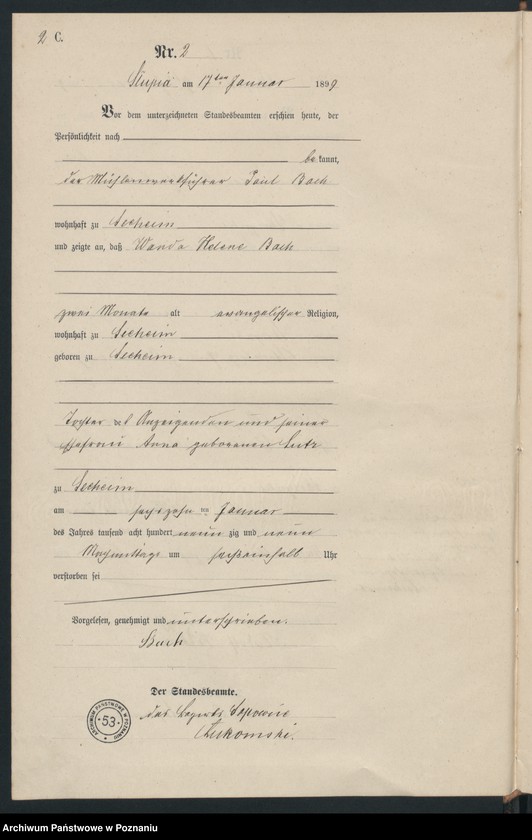 2 C.
Nr. 2
Slupia am 17ten Januar 1899
Vor dem unterzeichneten Standesbeamten erschien heute, der
Persönlichkeit nach
bekannt,
der Mühlenwerkführer Paul Bach
wohnhaft zu Seeheim
und zeigte an, daß Wanda Helene Bach
zwei Monate alt evangelischer Religion,
wohnhaft zu Seeheim
geboren zu Seeheim
Tochter des Anzeigenden und seiner
Ehefrau Anna geborenen Lutz
zu Seeheim
am sechszehnten Januar
des Jahres tausend acht hundert neunzig und neun
Nachmittags um sechseinhalb Uhr
verstorben sei
Vorgelesen, genehmigt und unterschrieben.
Bach
Der Standesbeamte.
ARCHIWUM PAŃSTWOWE W POZNANIU
53
Archiwum Państwowe w Poznaniu